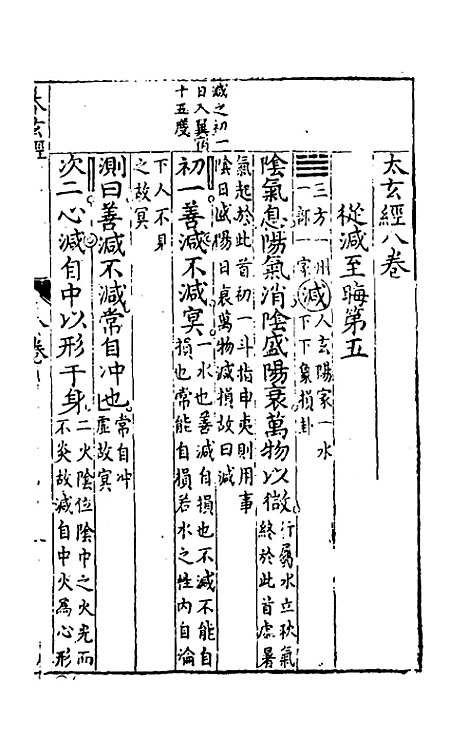 太玄經八卷
從減至晦第五
三方一州
一部一家
減
人玄陽家一水
下下象損卦
陰氣息陽氣消陰盛陽衰萬物以微
行屬水立秋氣
終於此首處暑
氣起於此首初一斗指申夷則用事
陰曰盛陽日衰萬物減損故曰減
減之初一
日入翼
十五度
初一善減不減冥
一水也善減自損也不減不能自
損也常能自損若水之性內自淪
下人不見
之故冥
測曰善減不減常自冲也
常自冲
虛故冥
次二心減自中以形于身
二火陰位陰中之火光而
不炎故減自中火爲心形
太玄經
八卷